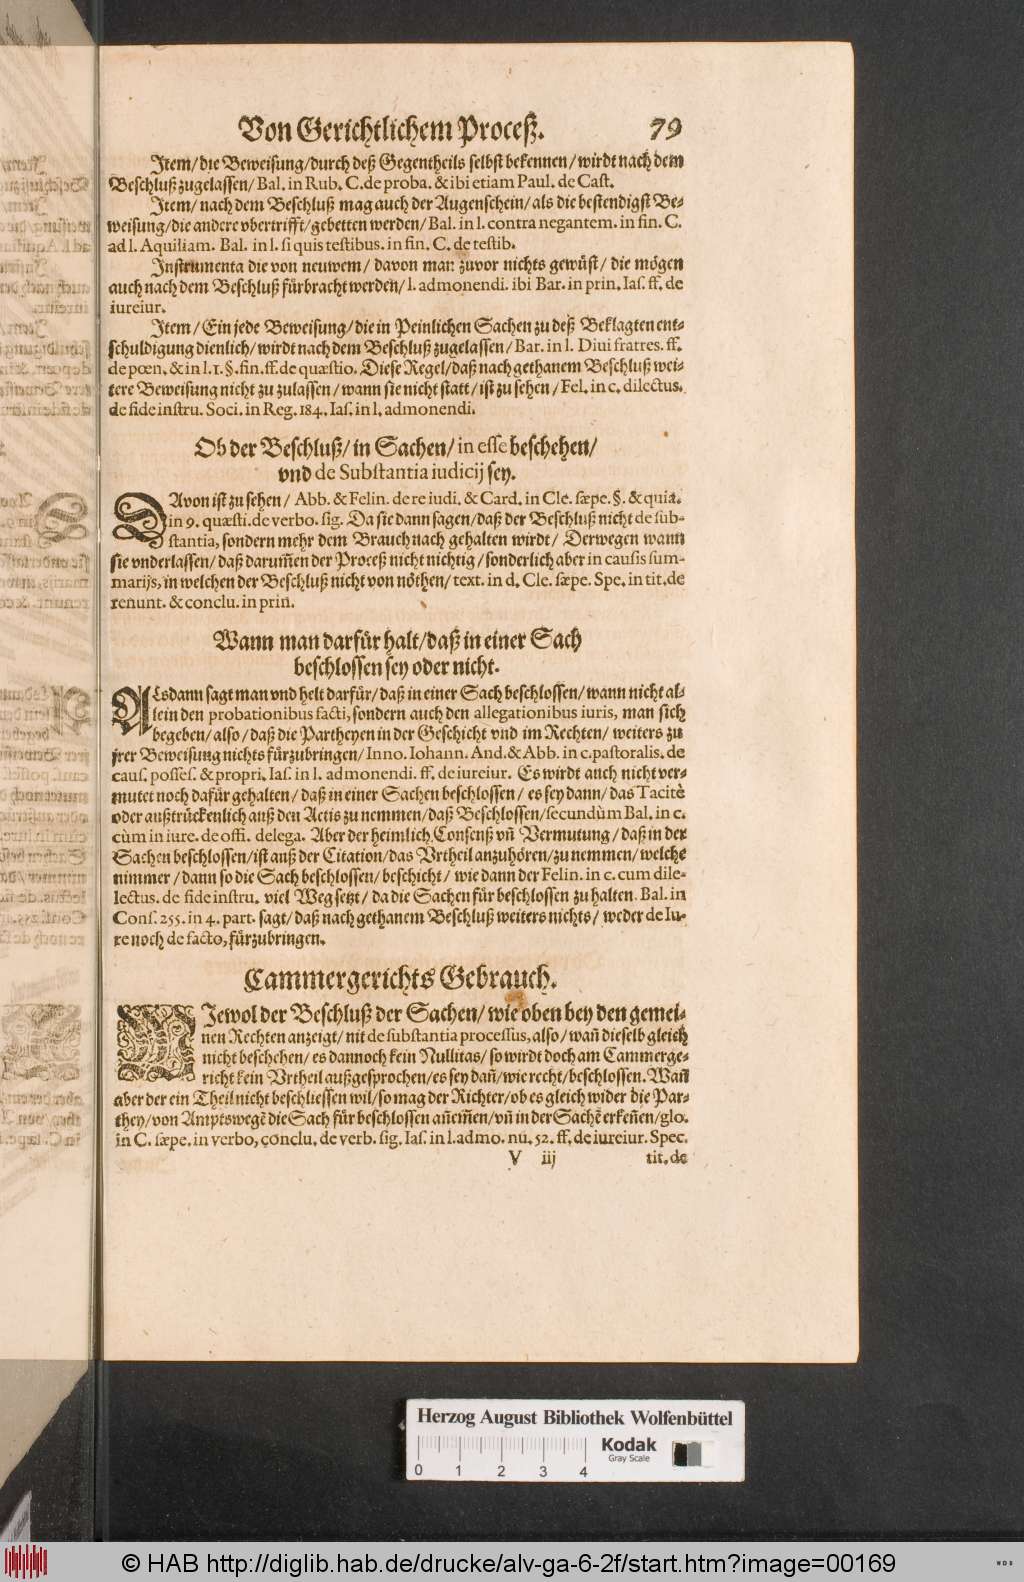 Von Gerichtlichem Proceß. 79
Item/ die Beweisung/ durch deß Gegentheils selbst bekennen/ wirdt nach dem
Beschluß zugelassen/ Bal. in Rub. C. de proba. & ibi etiam Paul. de Cast.
Item/ nach dem Beschluß mag auch der Augenschein/ als die bestendigst Be-
weisung/ die andere vbertrifft/ gebetten werden/ Bal. in l. contra negantem. in fin. C.
ad l. Aquiliam. Bal. in l. si quis testibus. in fin. C. de testib.
Instrumenta die von neuwem/ davon man zuvor nichts gewüst/ die mögen
auch nach dem Beschluß fürbracht werden/ l. admonendi. ibi Bar. in prin. Ias. ff. de
iureiur.
Item/ Ein jede Beweisung/ die in Peinlichen Sachen zu deß Beklagten ent-
schuldigung dienlich/ wirdt nach dem Beschluß zugelassen/ Bar. in l. Diui fratres. ff.
de pœn. & in l. 1. §. fin. ff. de quæstio. Diese Regel/ daß nach gethanem Beschluß wei-
tere Beweisung nicht zu zulassen/ wann sie nicht statt/ ist zu sehen/ Fel. in c. dilectus.
de fide instru. Soci. in Reg. 184. Ias. in l. admonendi.
Ob der Beschluß/ in Sachen/ in esse beschehen/
vnd de Substantia iudicij sey.
DAvon ist zu sehen/ Abb. & Felin. de re iudi. & Card. in Cle. sæpe. §. & quia.
in 9. quæsti. de verbo. sig. Da sie dann sagen/ daß der Beschluß nicht de sub-
stantia, sondern mehr dem Brauch nach gehalten wirdt/ Derwegen wann
sie vnderlassen/ daß darum̃en der Proceß nicht nichtig/ sonderlich aber in causis sum-
marijs, in welchen der Beschluß nicht von nöthen/ text. in d. Cle. sæpe. Spe. in tit. de
renunt. & conclu. in prin.
Wann man darfür halt/ daß in einer Sach
beschlossen sey oder nicht.
ALsdann sagt man vnd helt darfür/ daß in einer Sach beschlossen/ wann nicht al-
lein den probationibus facti, sondern auch den allegationibus iuris, man sich
begeben/ also/ daß die Partheyen in der Geschicht vnd im Rechten/ weiters zu
jrer Beweisung nichts fürzubringen/ Inno. Iohann. And. & Abb. in c. pastoralis. de
caus. posses. & propri. Ias. in l. admonendi. ff. de iureiur. Es wirdt auch nicht ver-
mutet noch dafür gehalten/ daß in einer Sachen beschlossen/ es sey dann/ das Tacitè
oder außtrückenlich auß den Actis zu nemmen/ daß Beschlossen/ secundùm Bal. in c.
cùm in iure. de offi. delega. Aber der heimlich Consenß vñ Vermutung/ daß in der
Sachen beschlossen/ ist auß der Citation/ das Vrtheil anzuhören/ zu nemmen/ welche
nimmer/ dann so die Sach beschlossen/ beschicht/ wie dann der Felin. in c. cum dile-
lectus. de fide instru. viel Weg setzt/ da die Sachen für beschlossen zu halten. Bal. in
Cons. 255. in 4. part. sagt/ daß nach gethanem Beschluß weiters nichts/ weder de Iu-
re noch de facto, fürzubringen.
Cammergerichts Gebrauch.
WJewol der Beschluß der Sachen/ wie oben bey den gemei-
nen Rechten anzeigt/ nit de substantia processus, also/ wañ dieselb gleich
nicht beschehen/ es dannoch kein Nullitas/ so wirdt doch am Cammerge-
richt kein Vrtheil außgesprochen/ es sey dañ/ wie recht/ beschlossen. Wañ
aber der ein Theil nicht beschliessen wil/ so mag der Richter/ ob es gleich wider die Par-
they/ von Amptswegẽ die Sach für beschlossen añem̃en/ vñ in der Sachẽ erkeñen/ glo.
in C. sæpe. in verbo, conclu. de verb. sig. Ias. in l. admo. nu. 52. ff. de iureiur. Spec.
V iij tit. de
Herzog August Bibliothek Wolfenbüttel
0 1 2 3 4
Kodak
Gray Scale
© HAB http://diglib.hab.de/drucke/alv-ga-6-2f/start.htm?image=00169
WDB